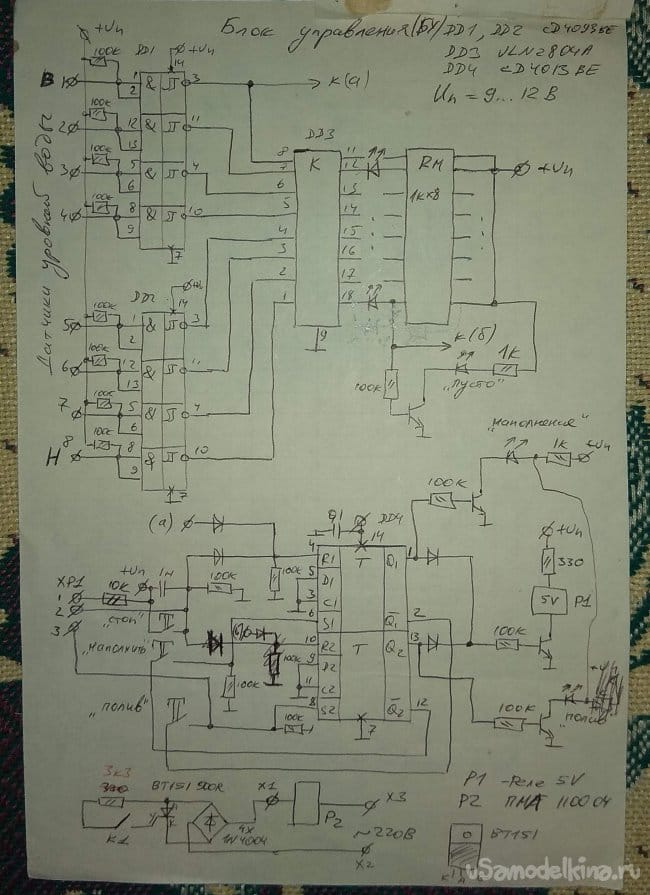 Блок управления (БУ) DD1, DD2 CD4093BE
DD3 ULN2804A
DD4 CD4013BE
Uп = 9...12 В
Датчики уровней воды
+Uп
DD1
+Uп
100к
14
В 1
1
2
&
3
к(а)
100к
2
12
13
&
11
100к
3
5
6
&
4
100к
4
8
9
&
10
7
DD2
14
100к
5
1
2
&
3
100к
6
12
13
&
11
100к
7
5
6
&
4
100к
8
Н
8
9
&
10
7
DD3
К
8
7
6
5
4
3
2
1
11
12
13
14
15
16
17
18
9
RM
1к×8
+Uп
к(б)
100к
"пусто"
1к
"наполнение"
1к
+Uп
100к
(а)
0,1
DD4
14
4 R1
5 D1
3 C1
6 S1
10 R2
9 D2
11 C2
8 S2
T
T
Q1 1
Q1 2
Q2 13
Q2 12
7
XP1
1
2
3
+Uп
10к
1н
100к
100к
"стоп"
"наполнить"
(б)
100к
100к
"полив"
100к
+Uп
330
5V
P1
100к
100к
"полив"
3к3
BT151 500R
К1
4х
1N4004
X1
P2
X3
~220В
X2
P1 - Реле 5V
P2 ПМЛ 110004
BT151
uSamodelkina.ru